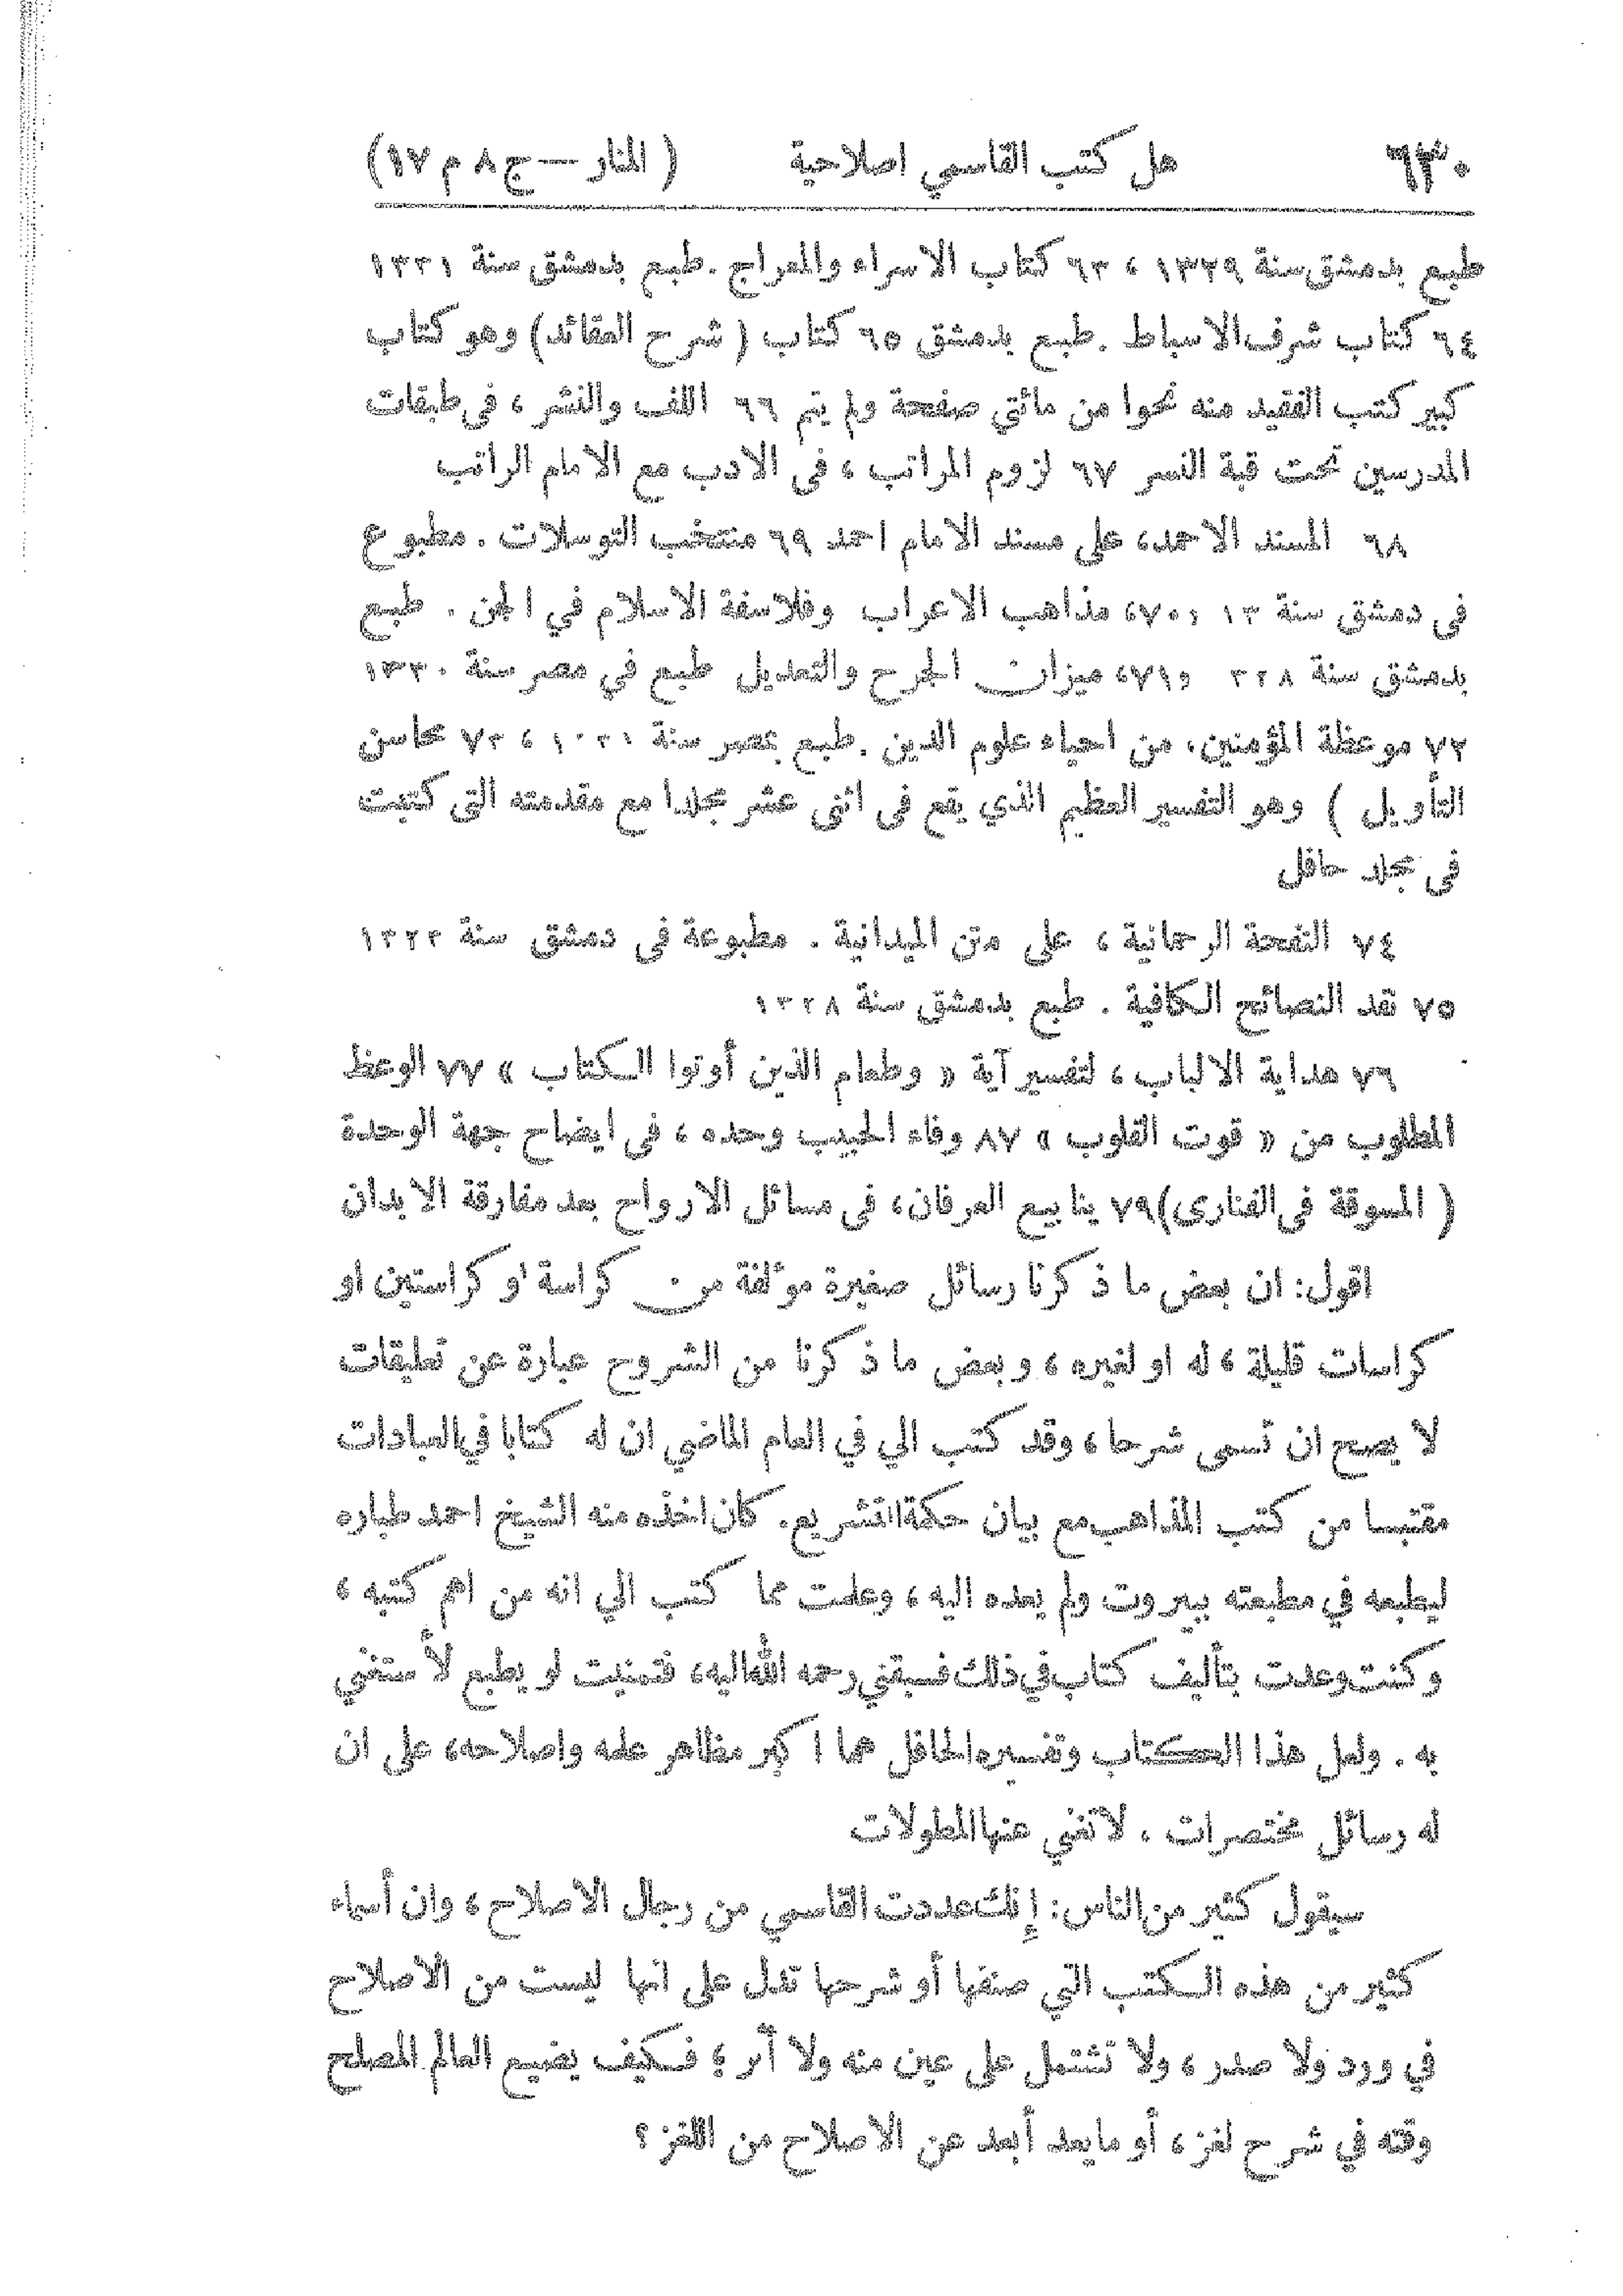 ٦٣٠ هل كتب القاسمي اصلاحية ( المنار — ج ٨ م ١٧ )
طبع بدمشق سنة ١٣٢٩ ، ٦٣ كتاب الاسراء والمعراج . طبع بدمشق سنة ١٣٣١
٦٤ كتاب شرف الاسباط . طبع بدمشق ٦٥ كتاب ( شرح العقائد ) وهو كتاب
كبير كتب الفقيد منه نحوا من مائتي صفحة ولم يتم ٦٦ اللف والنشر ، فى طبقات
المدرسين تحت قبة النسر ٦٧ لزوم المراتب ، فى الادب مع الامام الراتب
٦٨ المسند الاحمد، على مسند الامام احمد ٦٩ منتخب التوسلات . مطبوع
فى دمشق سنة ١٣ ، ٧٠، مذاهب الاعراب وفلاسفة الاسلام في الجن . طبع
بدمشق سنة ٣٢٨ و٧١، ميزان الجرح والتعديل طبع في مصر سنة ١٣٣٠
٧٢ موعظة المؤمنين، من احياء علوم الدين . طبع بمصر سنة ، ٧٣ محاسن
التأويل ) وهو التفسير العظيم الذي يقع فى اثنى عشر مجلدا مع مقدمته التى كتبت
فى مجلد حافل
٧٤ النفحة الرحمانية ، على متن الميدانية . مطبوعة فى دمشق سنة ١٣٢٣
٧٥ نقد النصائح الكافية . طبع بدمشق سنة ١٣٢٨
٧٦ هداية الالباب ، لتفسير آية « وطعام الذين أوتوا الكتاب » ٧٧ الوعظ
المطلوب من « قوت القلوب » ٨٧ وفاء الحبيب وحده ، فى ايضاح جهة الوحدة
( المسوقة فى الفنارى) ٧٩ ينابيع العرفان، فى مسائل الارواح بعد مفارقة الابدان
اقول: ان بعض ما ذكرنا رسائل صغيرة مؤلفة من كراسة او كراستين او
كراسات قليلة ، له او لغيره ، وبعض ما ذكرنا من الشروح عبارة عن تعليقات
لا يصح ان تسمى شرحا ، وقد كتب الي في العام الماضي ان له كتابا في العبادات
مقتبسا من كتب المذاهب مع بيان حكمة التشريع. كان اخذه منه الشيخ احمد طباره
ليطبعه في مطبعته ببيروت ولم يعده اليه ، وعلمت مما كتب الي انه من اهم كتبه ،
وكنت وعدت بتأليف كتاب في ذلك فسبقني رحمه الله اليه، فتمنيت لو يطبع لأستغني
به . ولعل هذا الكتاب وتفسيره الحافل هما اكبر مظاهر علمه واصلاحه، على ان
له رسائل مختصرات ، لا تغني عنها المطولات
سيقول كثير من الناس: إنك عددت القاسمي من رجال الاصلاح ، وان أسماء
كثير من هذه الكتب التي صنفها أو شرحها تدل على انها ليست من الاصلاح
في ورد ولا صدر ، ولا تشتمل على عين منه ولا أثر ؛ فكيف يضيع العالم المصلح
وقته في شرح لغز ، أو ما يعد أبعد عن الاصلاح من اللغز ؟